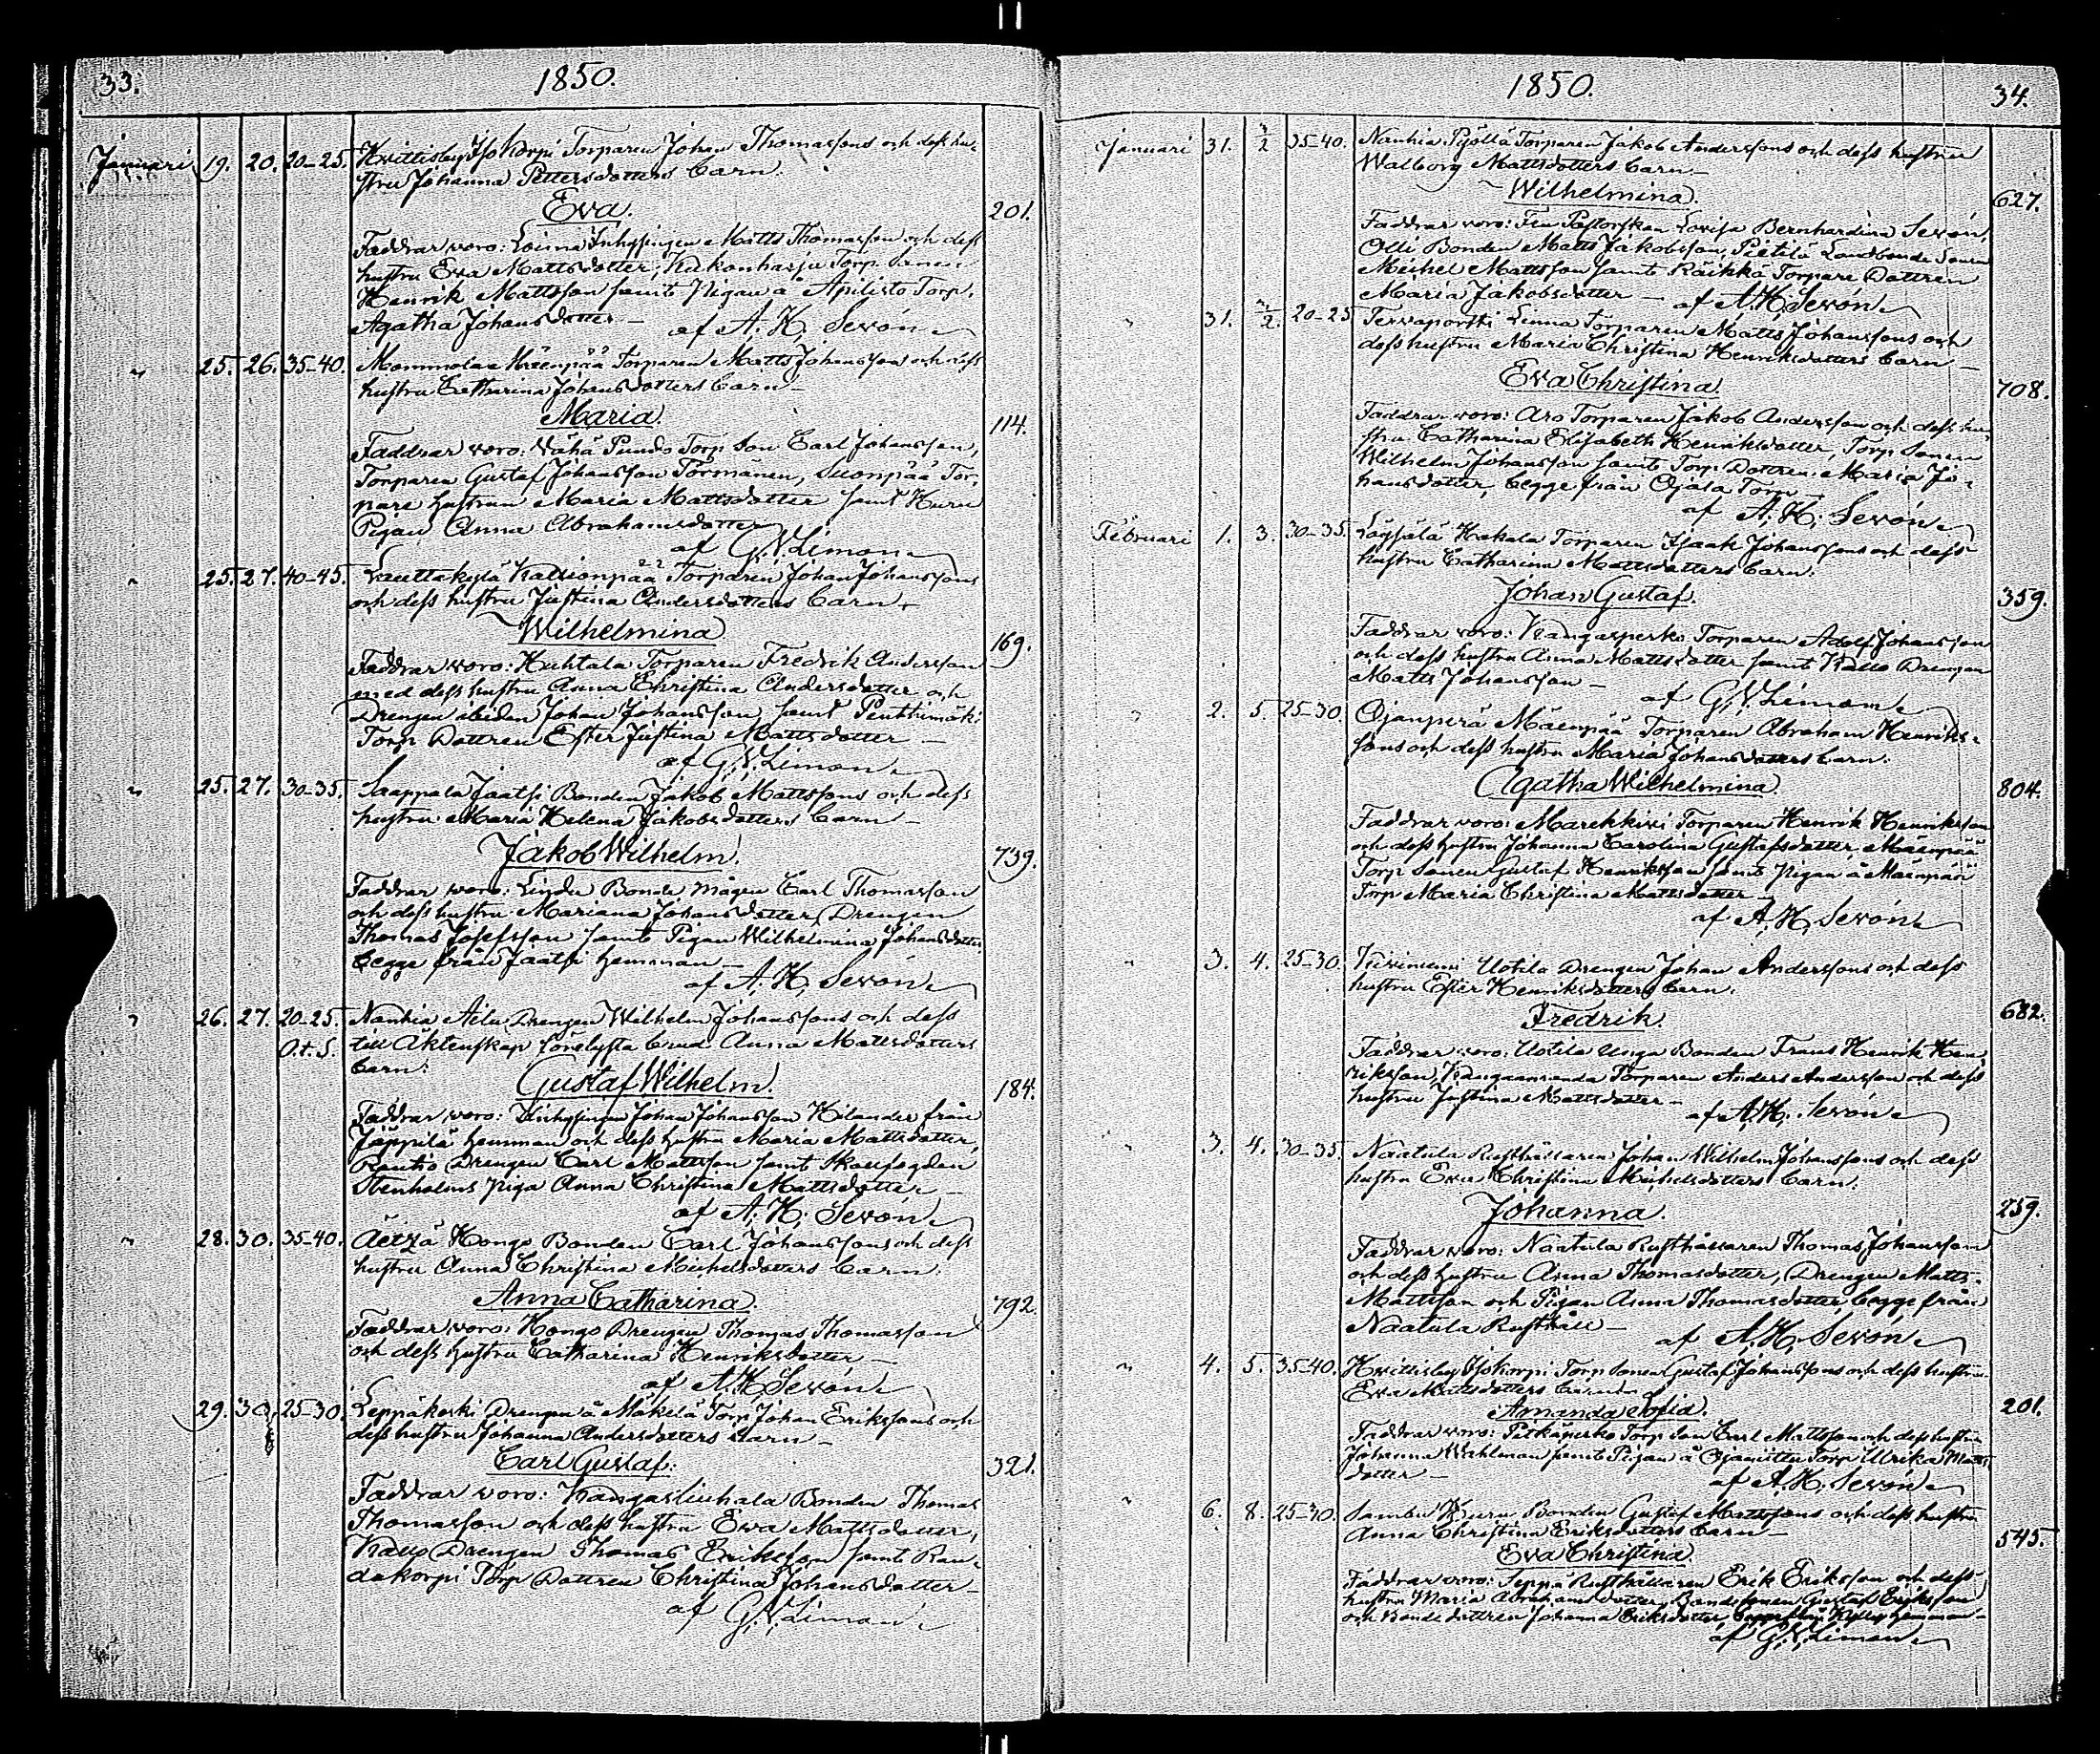 33.
1850.
Januari 19. 20. 20-25. Hvittisby Isokorpi Torparen Johan Thomassons och dess hu-
stru Johanna Pettersdotters barn.
Eva.
201.
Faddrar voro: Loima Inhysingen Matts Thomasson och dess
hustru Eva Mattsdotter, Torp Sonen
Henrik Mattsson samt Pigan å Apilisto Torp.
Agatha Johansdotter - af A. H. Sevón
" 25. 26. 35-40. Mommola Mäenpää Torparen Matts Johanssons och dess
hustru Catharina Johansdotters barn -
Maria.
114.
Faddrar voro: Vähä Pundo Torp Son Carl Johansson,
Torparen Gustaf Johansson Törmänen, Suonpää Tor-
pare hustrun Maria Mattsdotter samt Kuru
Pigan Anna Abrahamsdotter
af G. V. Limon
" 25. 27. 40-45. Lauttakylä Kallionpää Torparen Johan Johanssons
och dess hustru Justina Andersdotters barn.
Wilhelmina
169.
Faddrar voro: Huhtala Torparen Fredrik Andersson
med dess hustru Anna Christina Andersdotter och
Drengen Johan Johansson samt Penttimäki
Torp Dottren Ester Justina Mattsdotter -
af G. V. Limon
" 25. 27. 30-35. Saappala Jaatsi Bonden Jakob Mattssons och dess
hustru Maria Helena Jakobsdotters barn -
Jakob Wilhelm.
739.
Faddrar voro: Lindu Bonde Mågen Carl Thomasson
och dess hustru Mariana Johansdotter, Drengen
Thomas Josefsson samt Pigan Wilhelmina Johansdotter
begge från Jaatsi hemman -
af A. H. Sevón
" 26. 27. 20-25. Nankia Aila Drengen Wilhelm Johanssons och dess
O.t.S. till Äktenskap förelyfta brud Anna Mattsdotters
barn:
Gustaf Wilhelm.
184.
Faddrar voro: Inhysingen Johan Johansson Hilander från
Jäppilä hemman och dess hustru Maria Mattsdotter,
Rautio Drengen Carl Mattsson samt Skogsfogden
Stenholms piga Anna Christina Mattsdotter -
af A. H. Sevón
" 28. 30. 35-40. Äetzä Hongo Bonden Carl Johanssons och dess
hustru Anna Christina Michelsdotters barn.
Anna Catharina.
792.
Faddrar voro: Hongo Drengen Thomas Thomasson
och dess hustru Catharina Henriksdotter -
af A. H. Sevón
29. 30. 25-30. Leppäkoski Drengen å Mäkelä Torp Johan Erikssons och
dess hustru Johanna Andersdotters barn -
Carl Gustaf.
321.
Faddrar voro: Kangasluhala Bonden Thomas
Thomasson och dess hustru Eva Mattsdotter,
Kallo Drengen Thomas Eriksson samt Rau-
dakorpi Torp Dottren Christina Johansdotter -
af G. V. Limon
1850.
34.
Januari 31. 3/2 35-40. Nankia Pjöllä Torparen Jakob Anderssons och dess hustru
Walborg Mattsdotters barn. -
Wilhelmina.
627.
Faddrar voro: Fru Pastorskan Lovisa Bernhardina Sevón,
Olli Bonden Matts Jakobsson, Pietilä Landbonde Sonen
Michel Mattsson samt Räikkä Torpare Dottren
Maria Jakobsdotter - af A. H. Sevón
" 31. 3/2. 20-25 Tervaporski Linna Torparen Matts Johanssons och
dess hustru Maria Christina Henriksdotters barn -
Eva Christina
708.
Faddrar voro: Aro Torparen Jakob Andersson och dess hu-
stru Catharina Elisabeth Henriksdotter, Torp Sonen
Wilhelm Johansson samt Torp Dottren Maria Jo-
hansdotter, begge från Ojala Torp
af A. H. Sevón
Februari 1. 3. 30-35. Löysälä Krekala Torparen Isaak Johanssons och dess
hustru Catharina Mattsdotters barn.
Johan Gustaf.
359.
Faddrar voro: Kangasperko Torparen Adolf Johansson
och dess hustru Anna Mattsdotter samt Kallo Drengen
Matts Johansson -
af G. V. Limon
" 2. 5. 25-30. Ojanperä Mäenpää Torparen Abraham Henriks-
sons och dess hustru Maria Johansdotters barn.
Agatha Wilhelmina.
804.
Faddrar voro: Torparen Henrik Henriksson
och dess hustru Johanna Carolina Gustafsdotter, Mäenpää
Torp Sonen Gustaf Henriksson samt Pigan å Mäenpää
Torp Maria Christina Mattsdotter -
af A. H. Sevón
" 3. 4. 25-30. Kiviniemi Uotila Drengen Johan Anderssons och dess
hustru Ester Henriksdotters barn.
Fredrik.
682.
Faddrar voro: Uotila unga Bonden Frans Henrik Hen-
riksson, Torparen Anders Andersson och dess
hustru Justina Mattsdotter -
af A. H. Sevón
" 3. 4. 30-35. Naatula Rusthållaren Johan Wilhelm Johanssons och dess
hustru Eva Christina Michelsdotters barn.
Johanna.
259.
Faddrar voro: Naatula Rusthållaren Thomas Johansson
och dess hustru Anna Thomasdotter, Drengen Matts
Mattsson och Pigan Anna Thomasdotter, begge från
Naatula Rusthåll -
af A. H. Sevón
" 4. 5. 35-40. Hvittisby Isokorpi Torp Sonen Gustaf Johanssons och dess hustru
Eva Mattsdotters barn
Amanda Sofia.
201.
Faddrar voro: Pitkäperko Torp Son Carl Mattsson och dess hustru
Johanna Wahlman samt Pigan å Ojanittu Torp Ulrika Matts-
dotter -
af A. H. Sevón
" 6. 8. 25-30. Sambu Kuru Bonden Gustaf Mattssons och dess hustru
Anna Christina Eriksdotters barn -
545.
Eva Christina.
Faddrar voro: Seppä Rusthållaren Erik Eriksson och dess
hustru Maria Abrahamsdotter, Bondesonen Gustaf Eriksson
och Bonde dottren Johanna Eriksdotter, begge från hemman -
af G. V. Limon